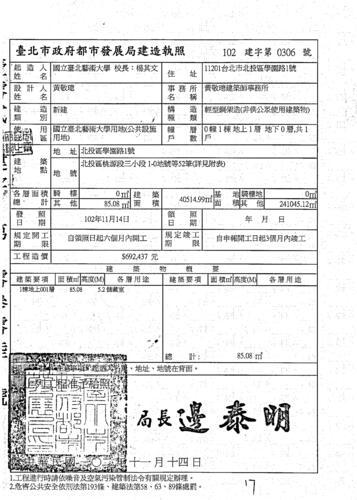 臺北市政府都市發展局建造執照 102 建字第 0306 號
起造人姓名 國立臺北藝術大學 校長:楊其文 住址 11201台北市北投區學園路1號
設計人姓名 黃敬壇 事務所名稱 黃敬壇建築師事務所
建造類別 新建 構造種類 輕型鋼架造(非供公眾使用建築物)
使用分區 國立臺北藝術大學用地(公共設施用地) 幢層棟戶數 0幢1棟 地上1層 地下0層,共1戶
建築地點 地址 北投區學園路1號
地號 北投區桃源段三小段 1-0地號等52筆(詳見附表)
各層面積總計 騎樓 0㎡ 其他 85.08㎡ 建築面積 40514.99㎡ 基地面積 騎樓地 0㎡ 其他 241045.12㎡
發照日期 102年11月14日 領照日期 年 月 日
規定開工期限 自領照日起六個月內開工 規定竣工期限 自申報開工日起3個月內竣工
工程造價 $692,437 元
建築物概要
建築要項 面積㎡ 高度(M) 各層用途 建築要項 面積㎡ 高度(M) 各層用途
1棟地上001層 85.08 5.2 儲藏室
總計: 85.08 ㎡
地址、地號在背面。
右列工程准予給照
局長 邊泰明
十一月十四日
1.工程進行時請依噪音及空氣污染管制法令有關規定辦理。
2.危害公共安全依刑法第193條、建築法第58、63、89條處罰。
17